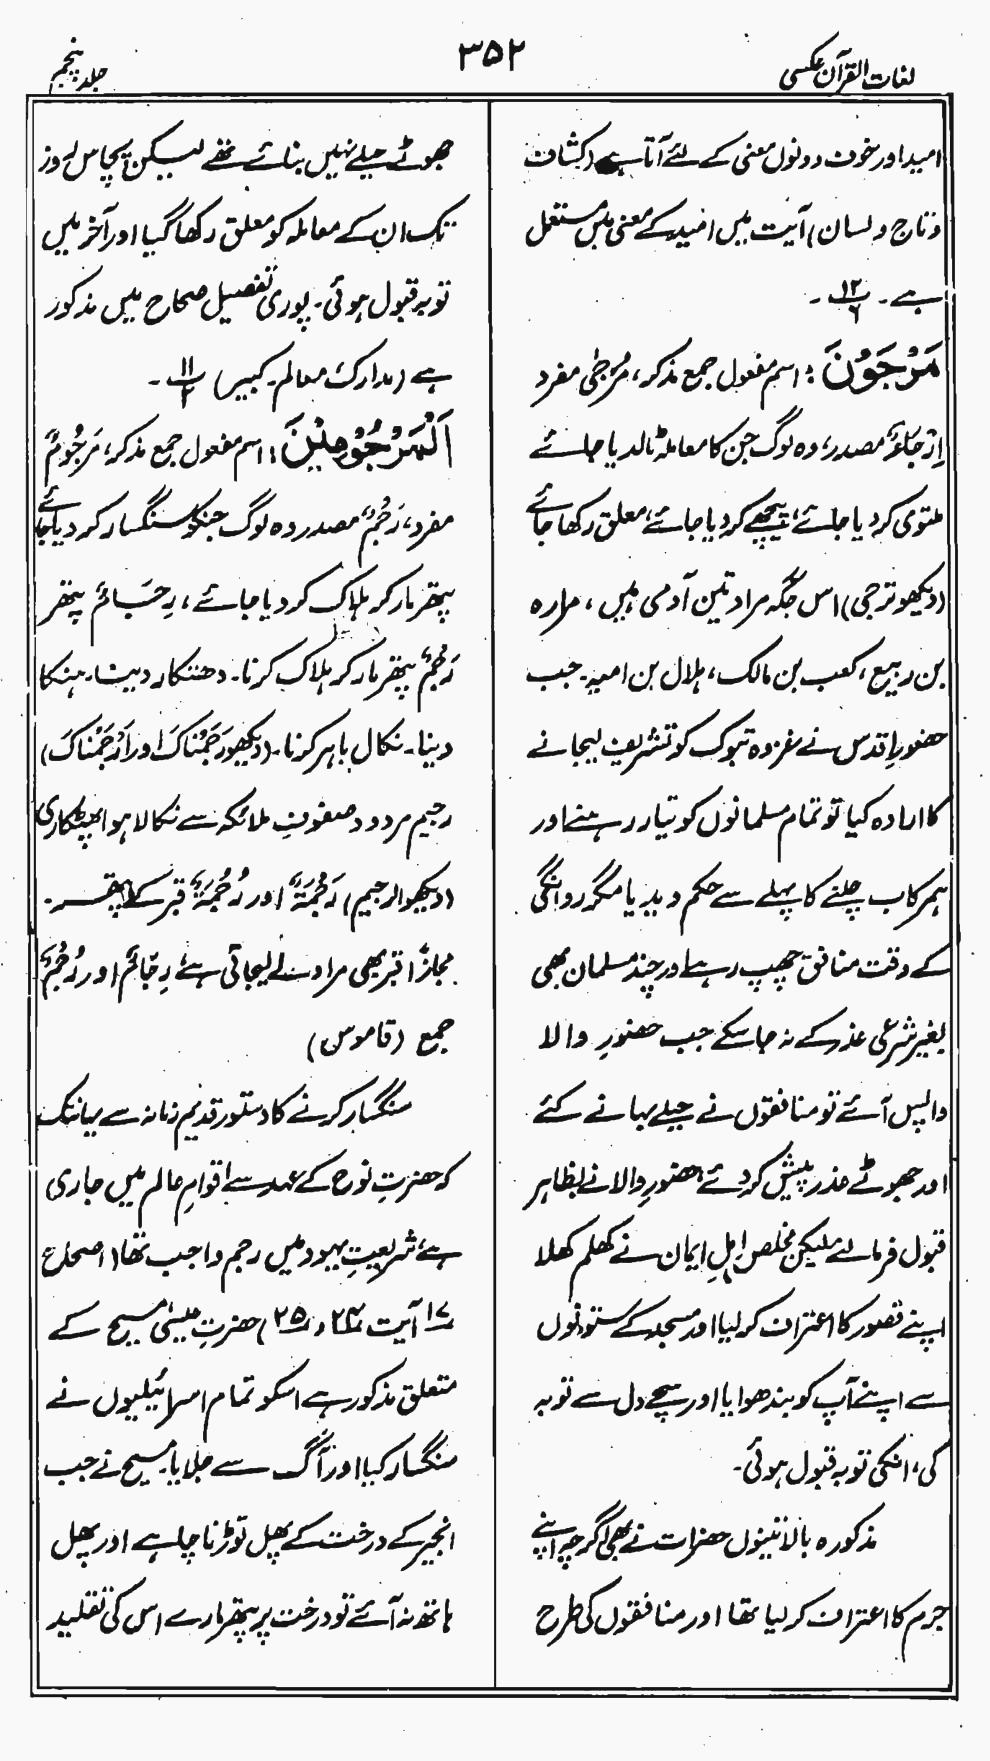 لغات القرآن عکسی
۳۵۲
جلد پنجم
امید اور خوف دونوں معنی کے لئے آتا ہے (کشاف
و تاج و لسان) آیت میں امید کے معنی میں مستعمل
ہے۔ پ ۱۲/۶ ۔
مَرْجَوْنَ : اسم مفعول جمع مذکر، مُرْجٰی مفرد
اِرْجَاءٌ مصدر، وہ لوگ جن کا معاملہ ٹالدیا جائے
ملتوی کر دیا جائے، پیچھے کر دیا جائے، معلق رکھا جائے
(دیکھو ترجی) اس جگہ مراد تین آدمی ہیں، مرارہ
بن ربیع، کعب بن مالک، ہلال بن امیہ۔ جب
حضور اقدس نے غزوہ تبوک کو تشریف لیجانے
کا ارادہ کیا تو تمام مسلمانوں کو تیار رہنے اور
ہمرکاب چلنے کا پہلے سے حکم دیدیا مگر روانگی
کے وقت منافق چھپ رہے اور چند مسلمان بھی
بغیر شرعی عذر کے نہ جا سکے جب حضورِ والا
واپس آئے تو منافقوں نے حیلے بہانے کئے
اور جھوٹے عذر پیش کر دئے حضورِ والا نے بظاہر
قبول فرمالئے لیکن مخلص اہلِ ایمان نے کھلم کھلا
اپنے قصور کا اعتراف کر لیا اور مسجد کے ستونوں
سے اپنے آپ کو بندھوایا اور سچے دل سے توبہ
کی، انکی توبہ قبول ہوئی۔
مذکورہ بالا تینوں حضرات نے بھی اگرچہ اپنے
جرم کا اعتراف کر لیا تھا اور منافقوں کی طرح
جھوٹے حیلے نہیں بنائے تھے لیکن پچاس روز
تک ان کے معاملہ کو معلق رکھا گیا اور آخر میں
توبہ قبول ہوئی۔ پوری تفصیل صحاح میں مذکور
ہے (مدارک معالم۔ کبیر) پ ۱۱/۲ ۔
اَلْمَرْجُوْمِیْنَ : اسم مفعول جمع مذکر، مَرْجُوْمٌ
مفرد، رَجْمٌ مصدر وہ لوگ جنکو سنگسار کر دیا جائے
پتھر مار کر ہلاک کر دیا جائے، رِجَامٌ پتھر
رَجْمٌ پتھر مار کر ہلاک کرنا۔ دھتکار دینا۔ ہنکا
دینا۔ نکال باہر کرنا۔ (دیکھو رَجَمْنَاکَ اور اَرْجَمْنَاکَ)
رجیم مردود صفوفِ ملائکہ سے نکالا ہوا پھٹکاری
(دیکھو الرجیم) رَجْمَۃٌ اور رُجْمَۃٌ قبر کے پتھر۔
مجازًا قبر بھی مراد لے لیجاتی ہے رِجَامٌ اور رُجُمٌ
جمع (قاموس)
سنگسار کرنے کا دستور قدیم زمانہ سے یہانتک
کہ حضرتِ نوح کے عہد سے اقوامِ عالم میں جاری
ہے، شریعتِ یہود میں رجم واجب تھا (اصحاح
۱۷ آیت ۲۴ و ۲۵) حضرتِ عیسٰی مسیح کے
متعلق مذکور ہے اسکو تمام اسرائیلیوں نے
سنگسار کیا اور آگ سے جلایا۔ مسیح نے جب
انجیر کے درخت کے پھل توڑنا چاہے اور پھل
ہاتھ نہ آئے تو درخت پر پتھر مارے اس کی تقلید